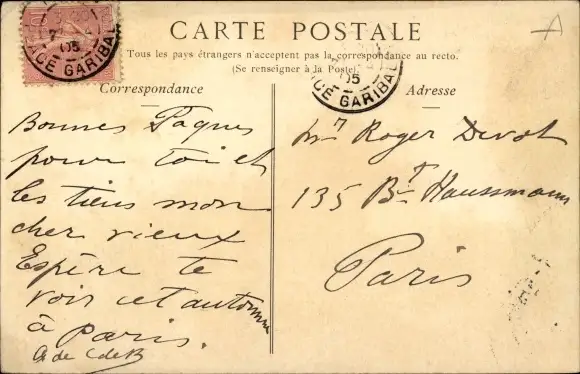 CARTE POSTALE
Tous les pays étrangers n'acceptent pas la correspondance au recto.
(Se renseigner à la Poste)
Correspondance
Bonnes Paques
pour toi et
les tiens mon
cher vieux
Espère te
voir cet automne
à Paris.
Adresse
Mr Roger Devot
135 Bt Haussmann
Paris
05
ACE GARIBAL
05
ACE GARIBAL